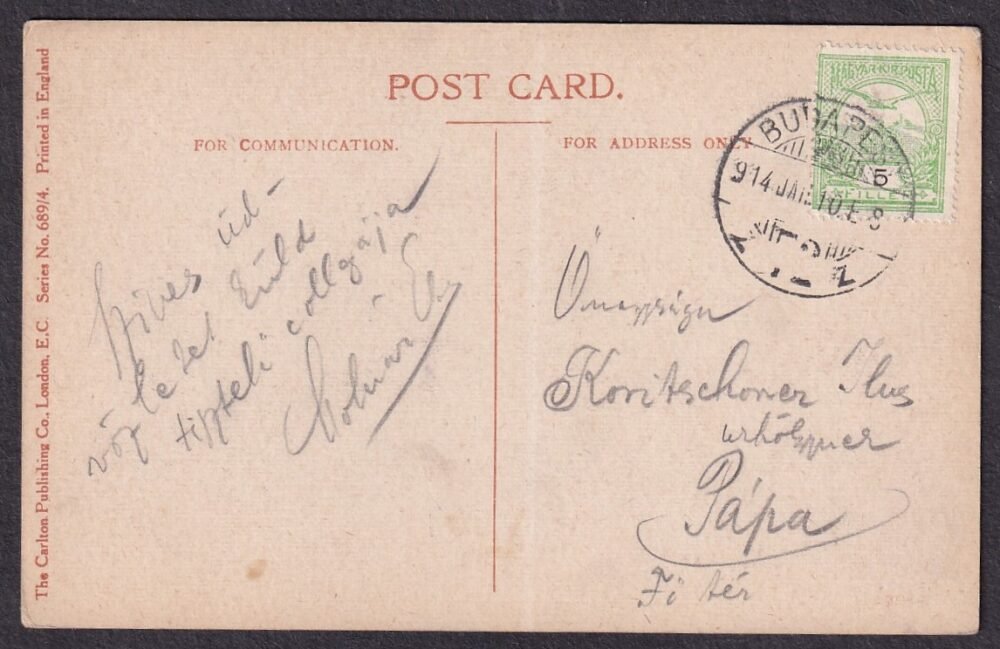 POST CARD.
FOR COMMUNICATION.
FOR ADDRESS ONLY
The Carlton Publishing Co., London, E.C. Series No. 689/4. Printed in England
MAGYAR KIR. POSTA
5
FILLÉR
BUDAPEST
914 JAN 10
Szives üd-
vözletet küld
tisztelő collegája
Molnár
Koritschoner Ilus
úrhölgynek
Pápa
Fő tér